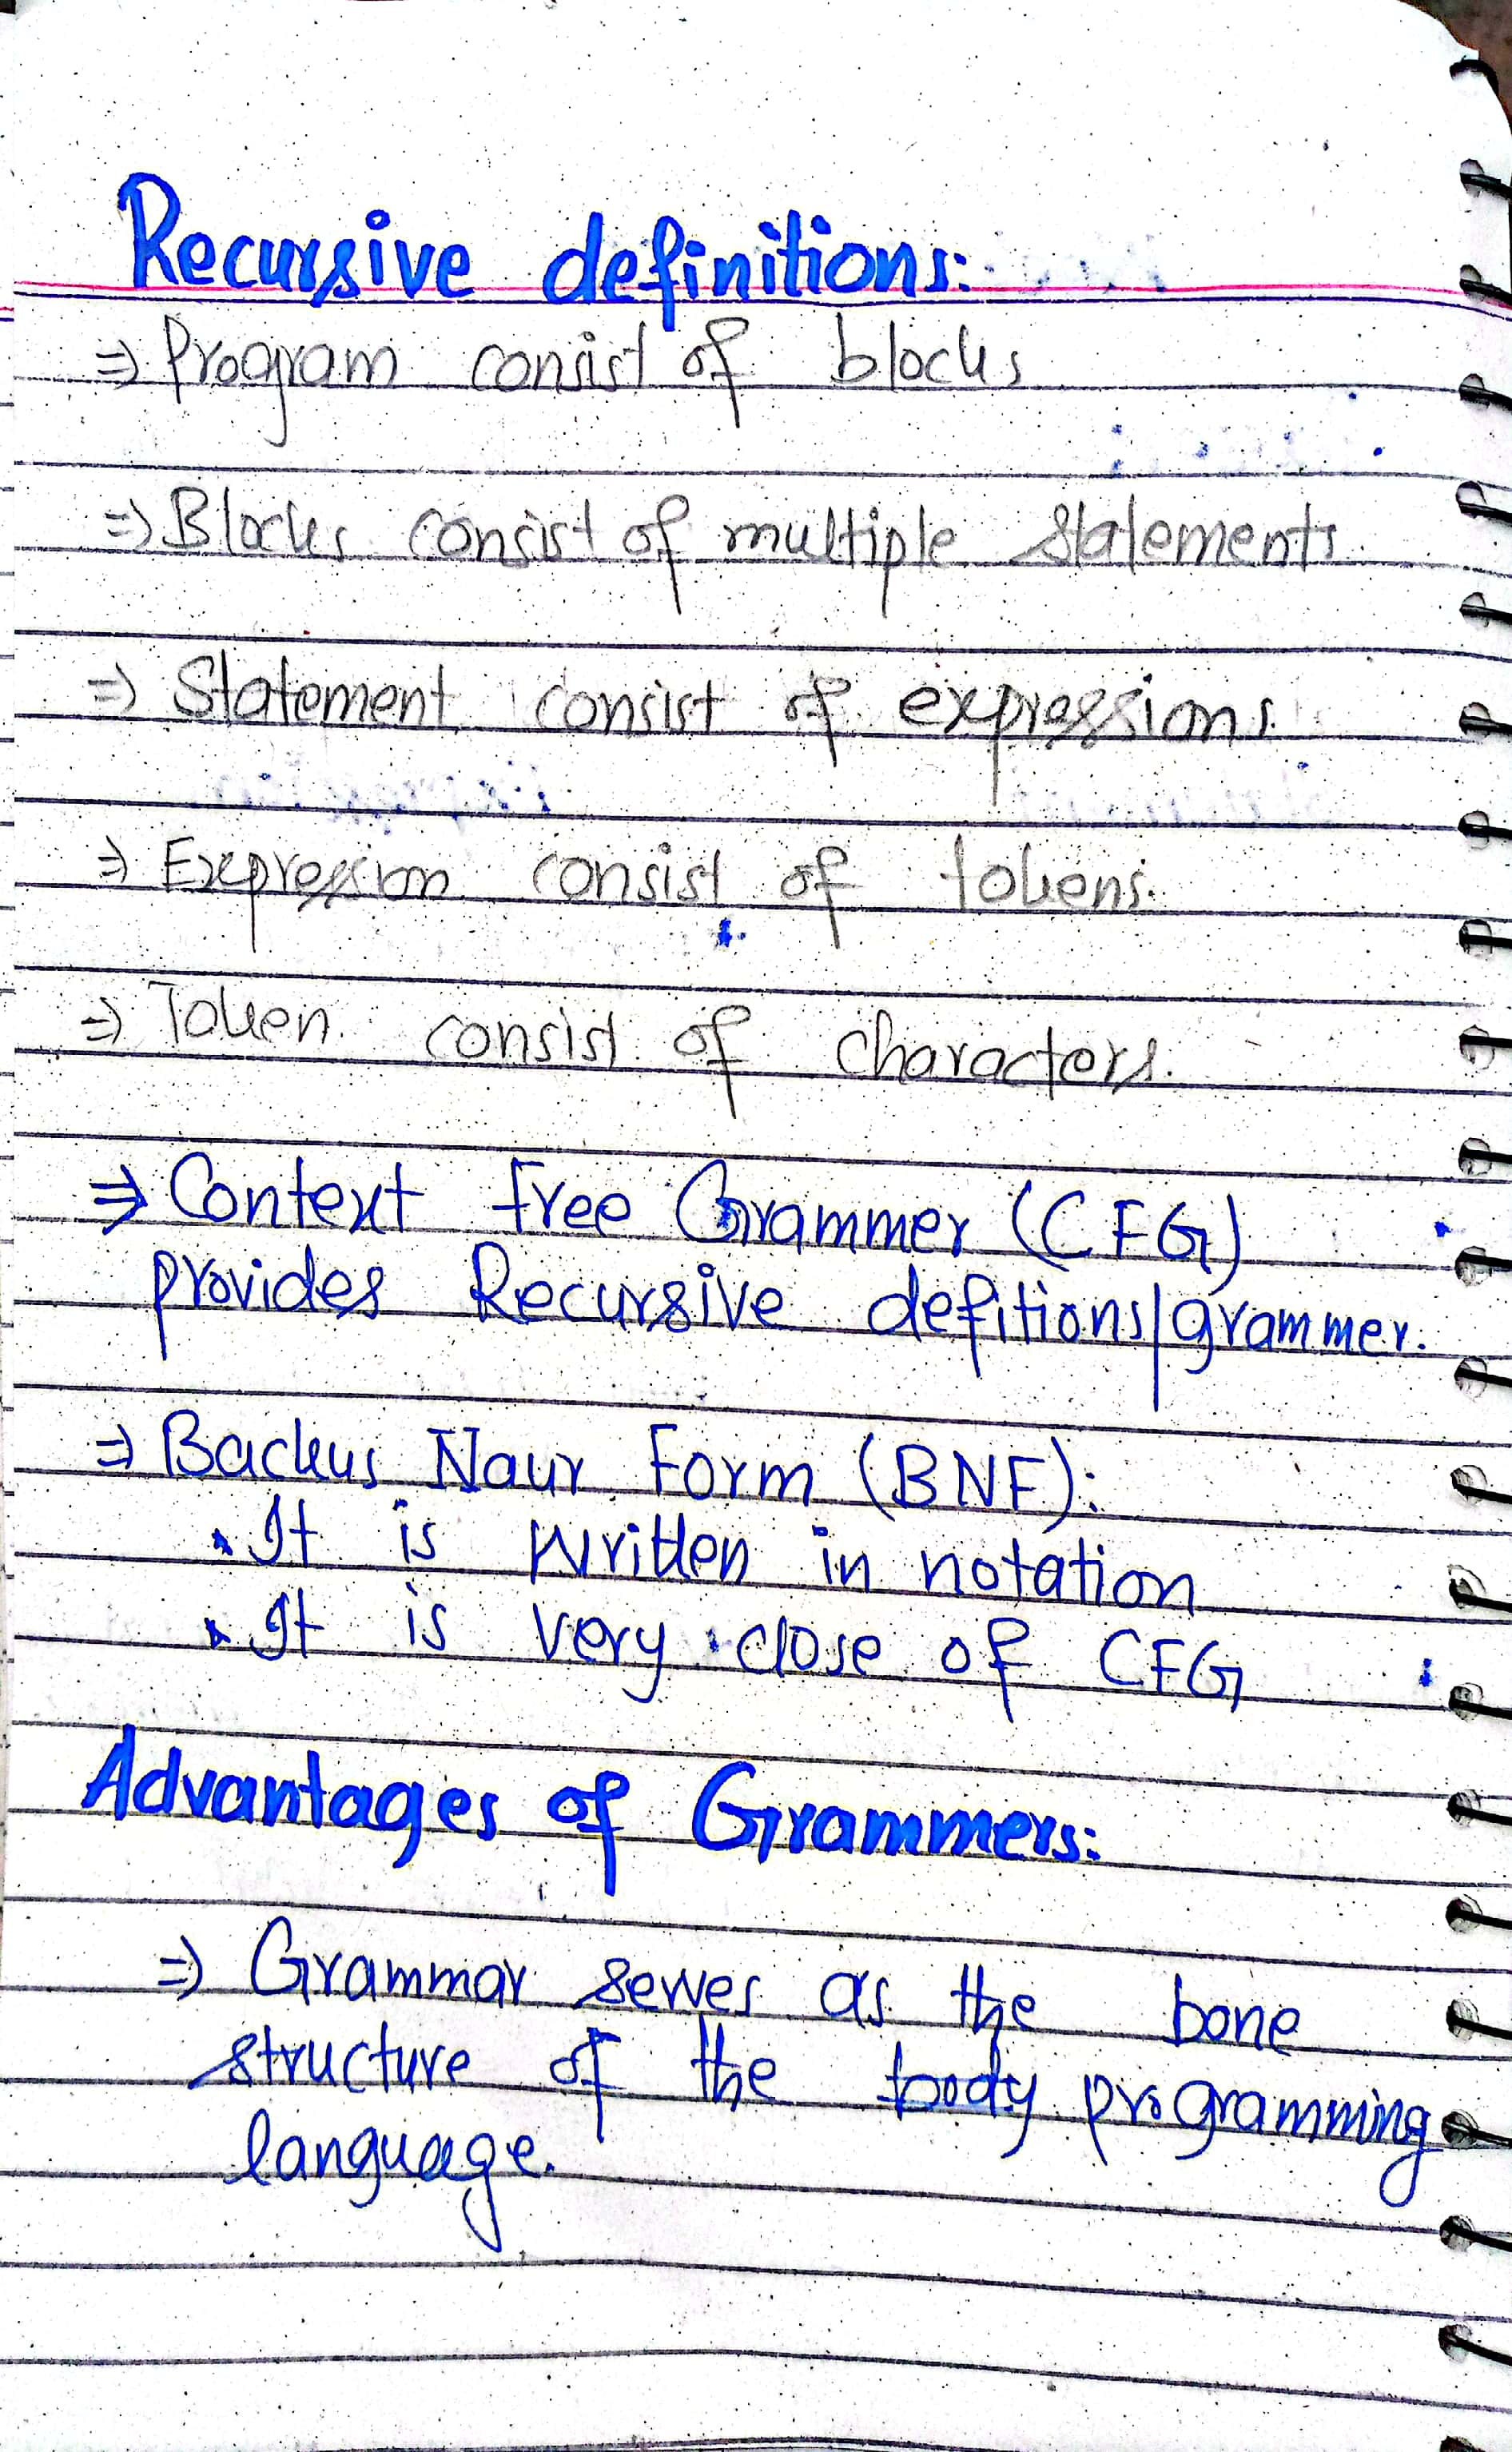 Recursive definitions:
⇒ Program consist of blocks
⇒ Blocks consist of multiple statements
⇒ Statement consist of expressions.
⇒ Expression consist of tokens.
⇒ Token consist of characters.
⇒ Context free Grammer (CFG)
provides Recursive defitions/grammer.
⇒ Backus Naur Form (BNF):
• It is written in notation
• It is very close of CFG
Advantages of Grammers:
⇒ Grammar serves as the bone
structure of the body programming
language.